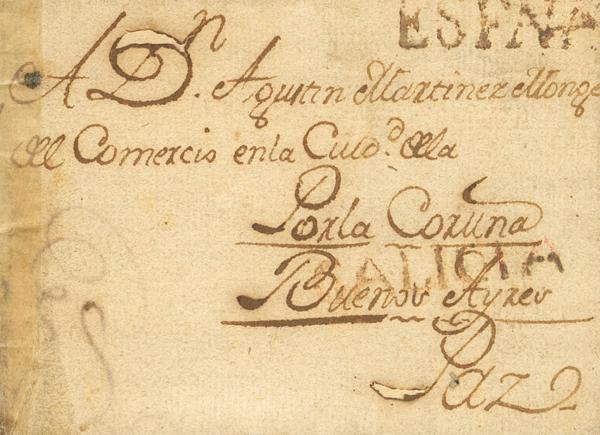 ESPNA
A Dn. Agustin Martinez Monge
del Comercio enla Ciudd. dela
Porla Coruña
GALICIA
Buenos Ayres
Paz